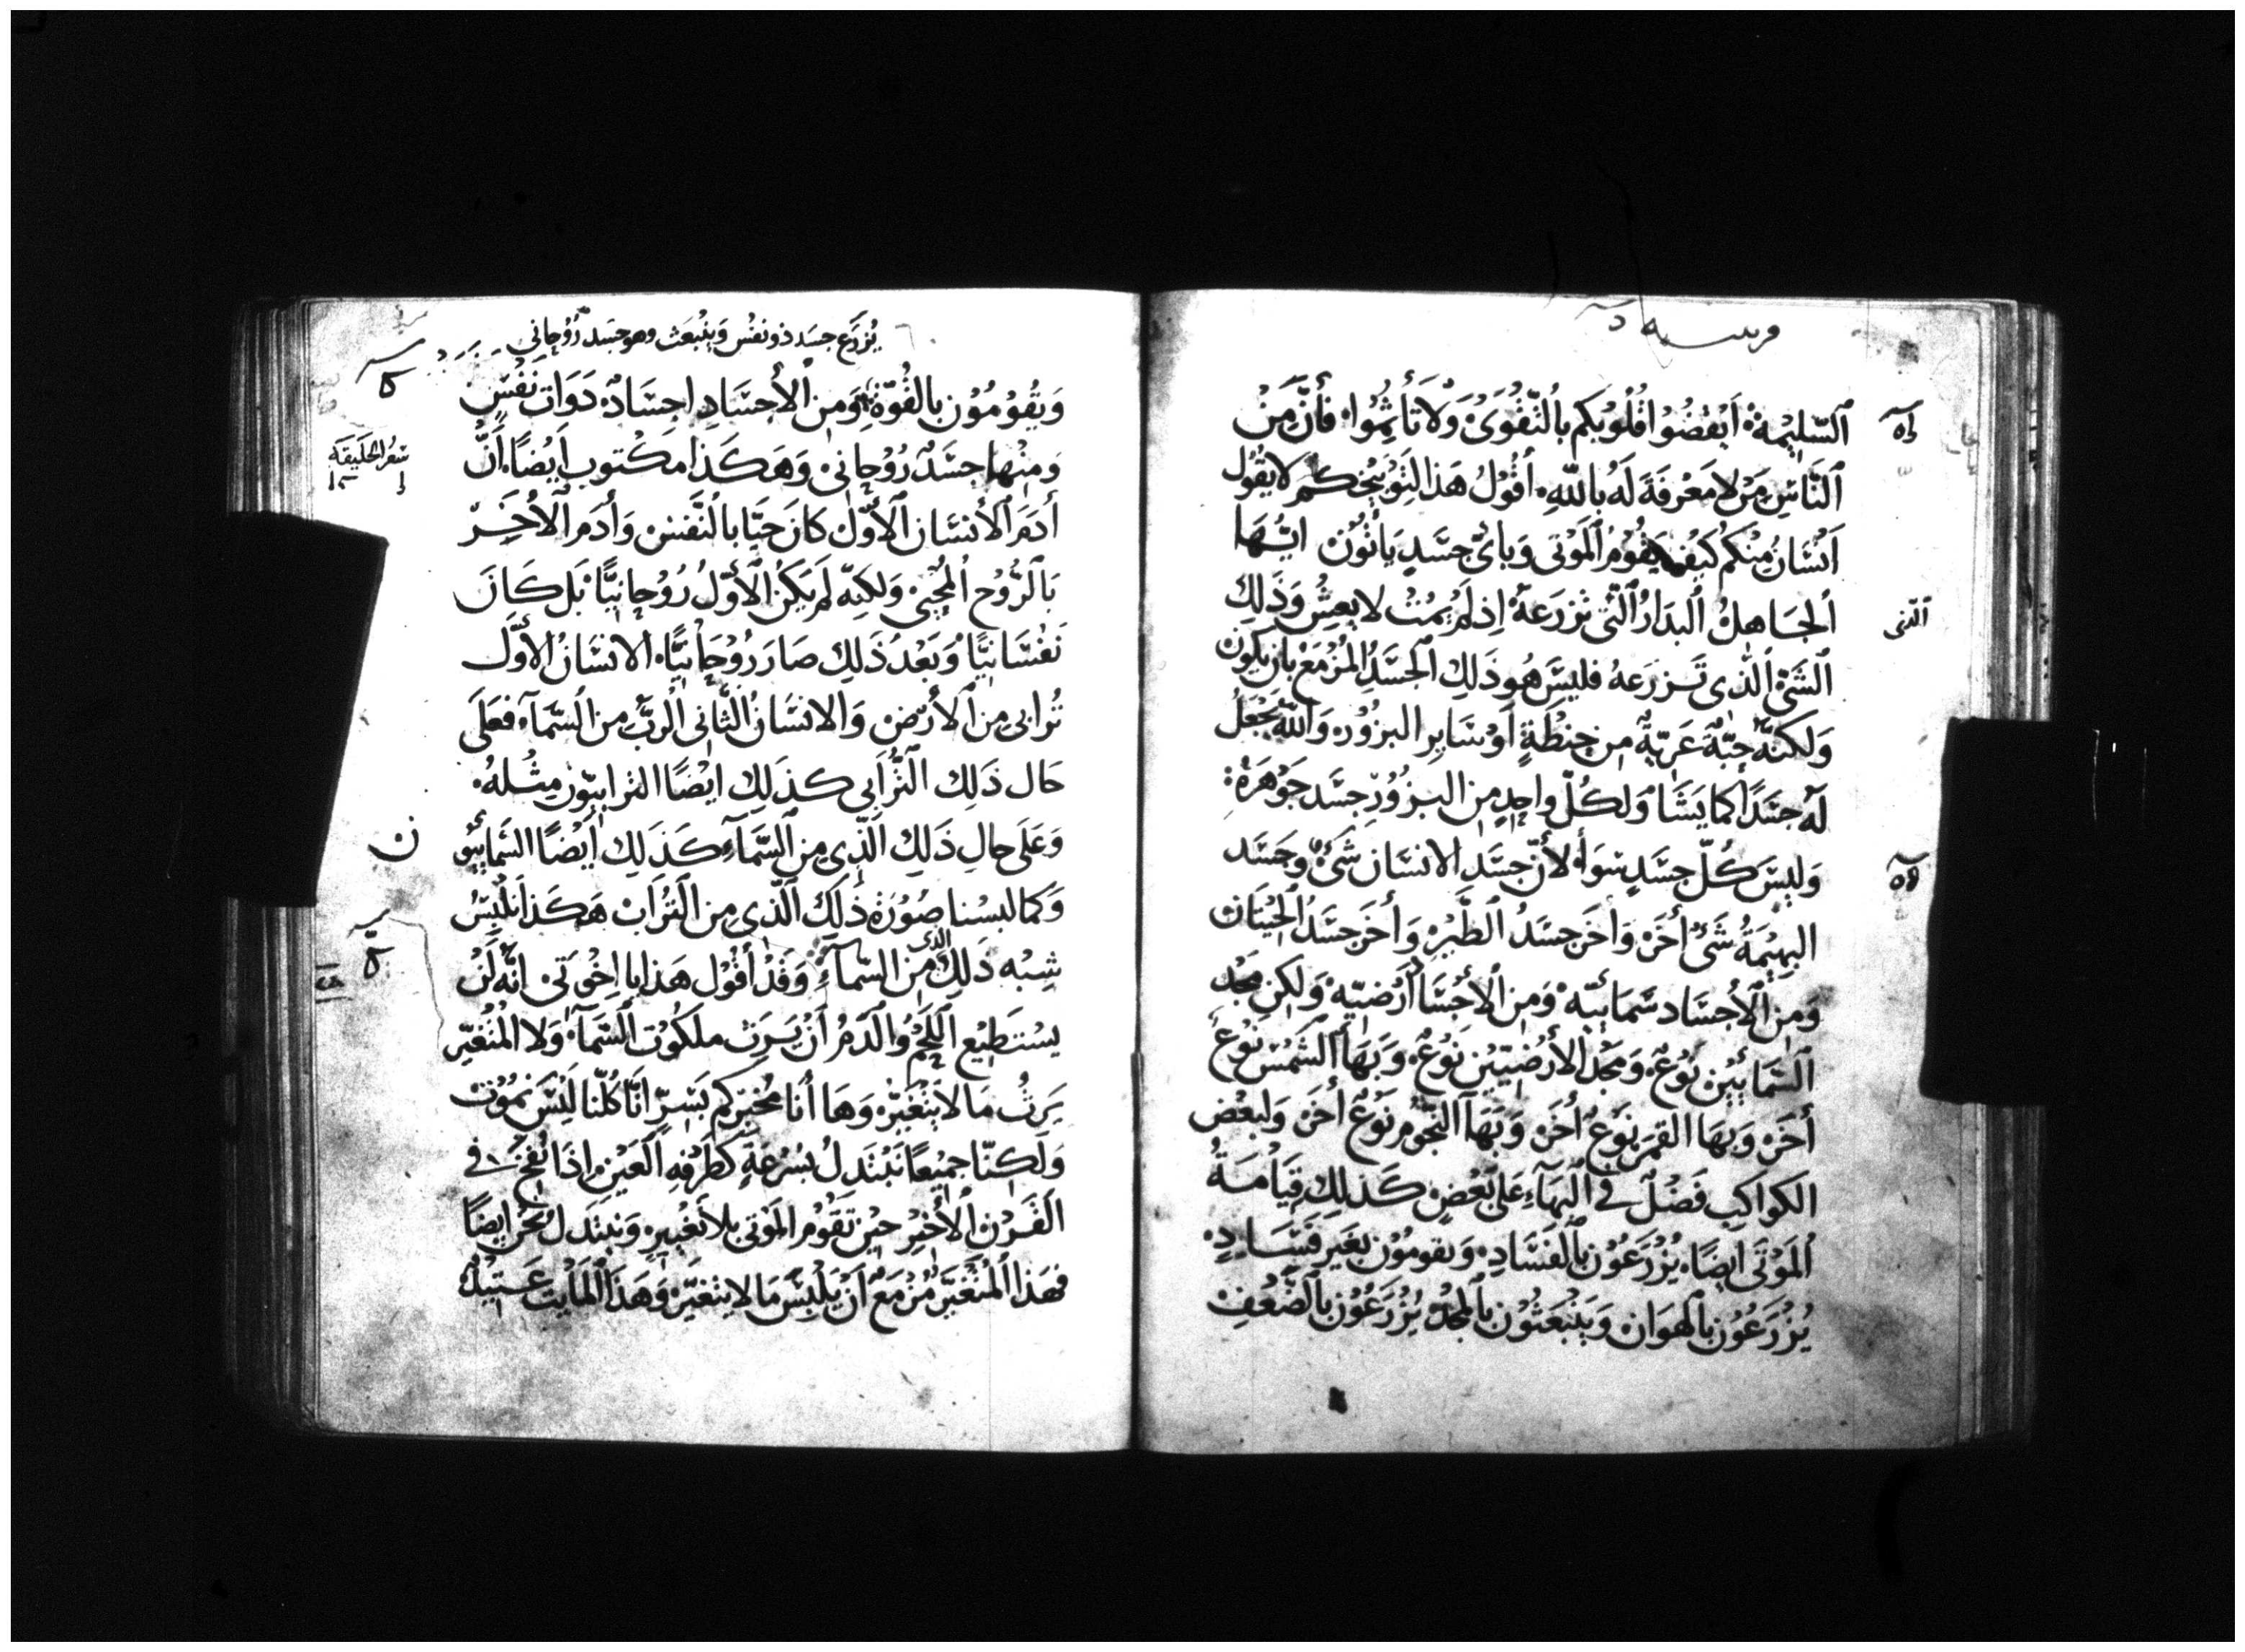 السّليمة أيقضوا قلوبكم بالتّقوى ولا تأثموا فأنّ من
النّاس من لا معرفة له بالله أقول هذا لتوبيخكم لا يقول
انسان منكم كيف يقوم الموتى وبايّ جسد ياتون ايّها
الجاهل البدار الّتى تزرعه اذ لم يمت لا يعش وذلك
الّتى
الشئ الّذى تزرعه فليس هو ذلك الجسد المزمع بان يكون
ولكنّه حبّة عريّة من حنطة أو ساير البزور والله يجعل
له جسدا كما يشا ولكلّ واحد من البزور جسد جوهره
وليس كلّ جسد سوأ لأنّ جسد الانسان شئ وجسد
البهيمة شئ أخر وأخر جسد الطير وأخر جسد الحيتان
ومن الأجساد سمائيّه ومن الأجسا أرضيّه ولكن مجد
السّمائيين نوع ومجد الأرضيّين نوع وبها الشّمس نوع
أخر وبها القمر نوع أخر وبهآ النّجوم نوع أخر ولبعض
الكواكب فضل في البهآء على بعض كذلك قيامة
الموتى ايضا يزرعون بالفساد ويقومون بغير فساد
يزرعون بالهوان وينبعثون بالمجد يزرعون بالضّعف
يزرع جسد ذو نفس وينبعث وهو جسد روحاني
ويقومون بالقوّة ومن الأجساد اجساد دوات نفس
ومنها جسد روحانى وهكذا مكتوب ايضا أنّ
سفر الخليقة
أدم الأنسان الأوّل كان حيّا بالنّفس وأدم الأخر
بالرّوح المحيى ولكنّه لم يكن الأوّل روحانيّا بل كان
نفسانيّا وبعد ذلك صار روحانيّا الانسان الأوّل
ترابى من الأرض والانسان الثّانى الرّبّ من السّمآء فعلى
حال ذلك التّرابى كذلك ايضا الترابيّون مثله
وعلى حال ذلك الّذى من السّمآء كذلك أيضا السّمائيّو
ن
وكما لبسنا صورة ذلك الّذى من التراب هكذا نلبس
شبه ذلك الذى من السّمآء وقد أقول هذا يا اخوتى انّه لن
يستطيع اللّحم والدّم أن يرث ملكوت السّمآء ولا المتغيّر
يرث ما لا يتغيّر وها أنا مخبركم بسرّ انّا كلّنا ليس نموت
ولكنّا جميعا نبتدل بسرعة كطرفة العين اذا نفخ في
القرن الأخير حين تقوم الموتى بلا تغيير ونبتدل نحن ايضا
فهذا المتغيّر مزمع أن يلبس ما لا يتغيّر وهذا المايت عتيد